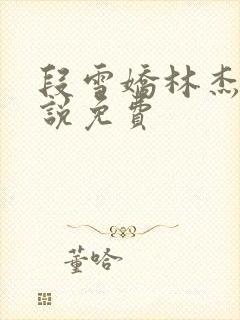 段雪嬌林杰
說免費
董哈